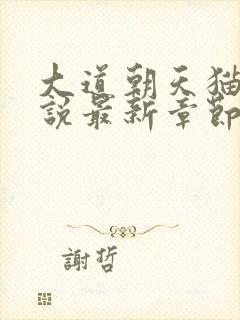 大道朝天猫
說最新章節
謝哲